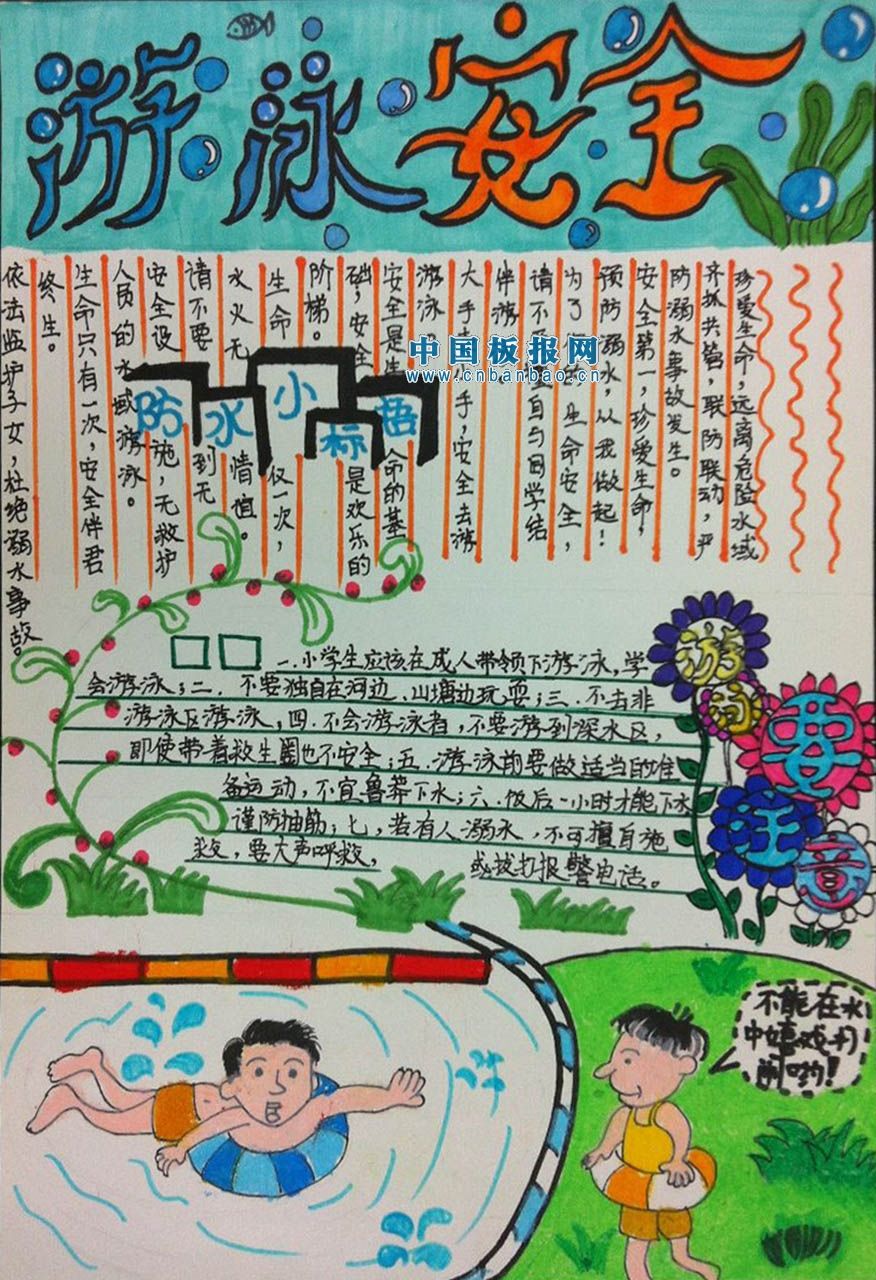 游泳安全
珍爱生命，远离危险水域
齐抓共管，联防联动，严
防溺水事故发生。
安全第一，珍爱生命，
预防溺水，从我做起！
为了 生命安全，
请不 自与同学结
伴游
大手 小手，安全去游
游泳
安全是生命的基
础，安全是欢乐的
阶梯。
生命仅一次，
水火无情
请不要到无
安全设施，无救护
人员的水域游泳。
生命只有一次，安全伴君
终生。
依法监护子女，杜绝溺水事故。
防水小标语
中国板报网
www.cnbanbao.cn
一.小学生应该在成人带领下游泳，学
会游泳；二．不要独自在河边、山塘边玩耍；三．不去非
游泳区游泳，四．不会游泳者，不要游到深水区，
即使带着救生圈也不安全；五．游泳前要做适当的准
备运动，不宜鲁莽下水；六．饭后一小时才能下水
谨防抽筋；七，若有人溺水，不可擅自施
救，要大声呼救，或拨打报警电话。
游泳要注意
不能在水
中嬉戏打
闹哟！